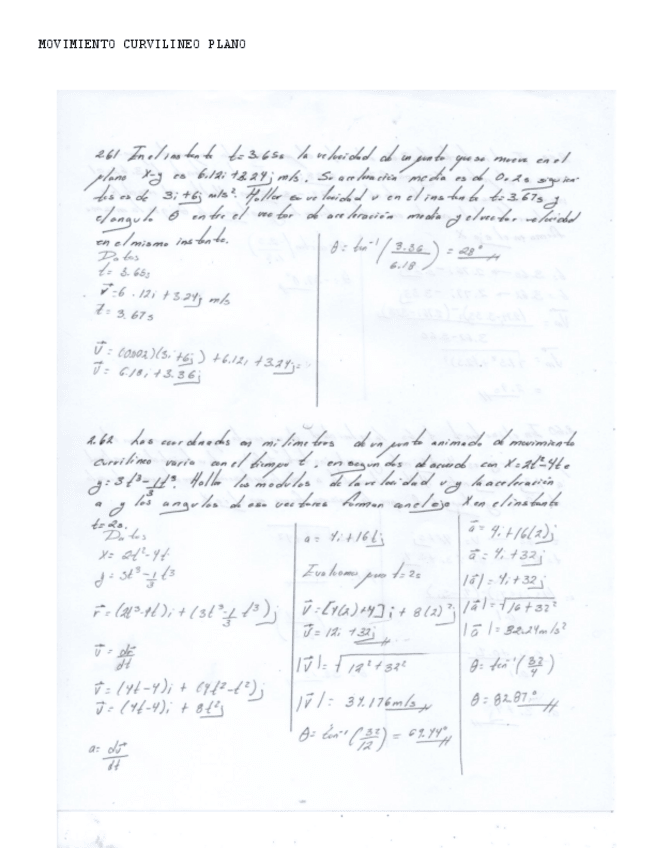 MOVIMIENTO CURVILINEO PLANO
2.61 En el instante t=3.65s la velocidad de un punto que se mueve en el
plano x-y es 6.12i+3.24j m/s. Su aceleración media es de 0.02s siguien
tes es de 3i+6j m/s². Hallar su velocidad v en el instante t=3.67s y
el angulo θ entre el vector de aceleración media y el vector velocidad
en el mismo instante.
Datos
t=3.65s
v⃗=6.12i+3.24j m/s
t=3.67s
v⃗=(0.02)(3i+6j)+6.12i+3.24j=
v⃗=6.18i+3.36j
θ=tan⁻¹(3.36/6.18)=28°
2.62 Las coordenadas en milimetros de un punto animado de movimiento
curvilineo varia con el tiempo t, en segundos de acuerdo con X=2t²-4t e
y=3t³-1/3t³. Hallar los modulos de la velocidad v y la aceleración
a y los angulos de eso vectores forman con el eje X en el instante
t=2s.
Datos
x=2t²-4t
y=3t³-1/3t³
r⃗=(2t²-4t)i+(3t³-1/3t³)j
v⃗=dr⃗/dt
v⃗=(4t-4)i+(9t²-t²)j
v⃗=(4t-4)i+8t²j
a=dv⃗/dt
a=4i+16tj
Evaluamos para t=2s
v⃗=[4(2)+4]i+8(2)²j
v⃗=12i+32j
|v⃗|=√12²+32²
|v⃗|=34.176m/s
θ=tan⁻¹(32/12)=69.44°
a⃗=4i+16(2)j
a⃗=4i+32j
|a⃗|=4i+32j
|a⃗|=√16+32²
|a⃗|=32.24m/s²
θ=tan⁻¹(32/4)
θ=82.87°